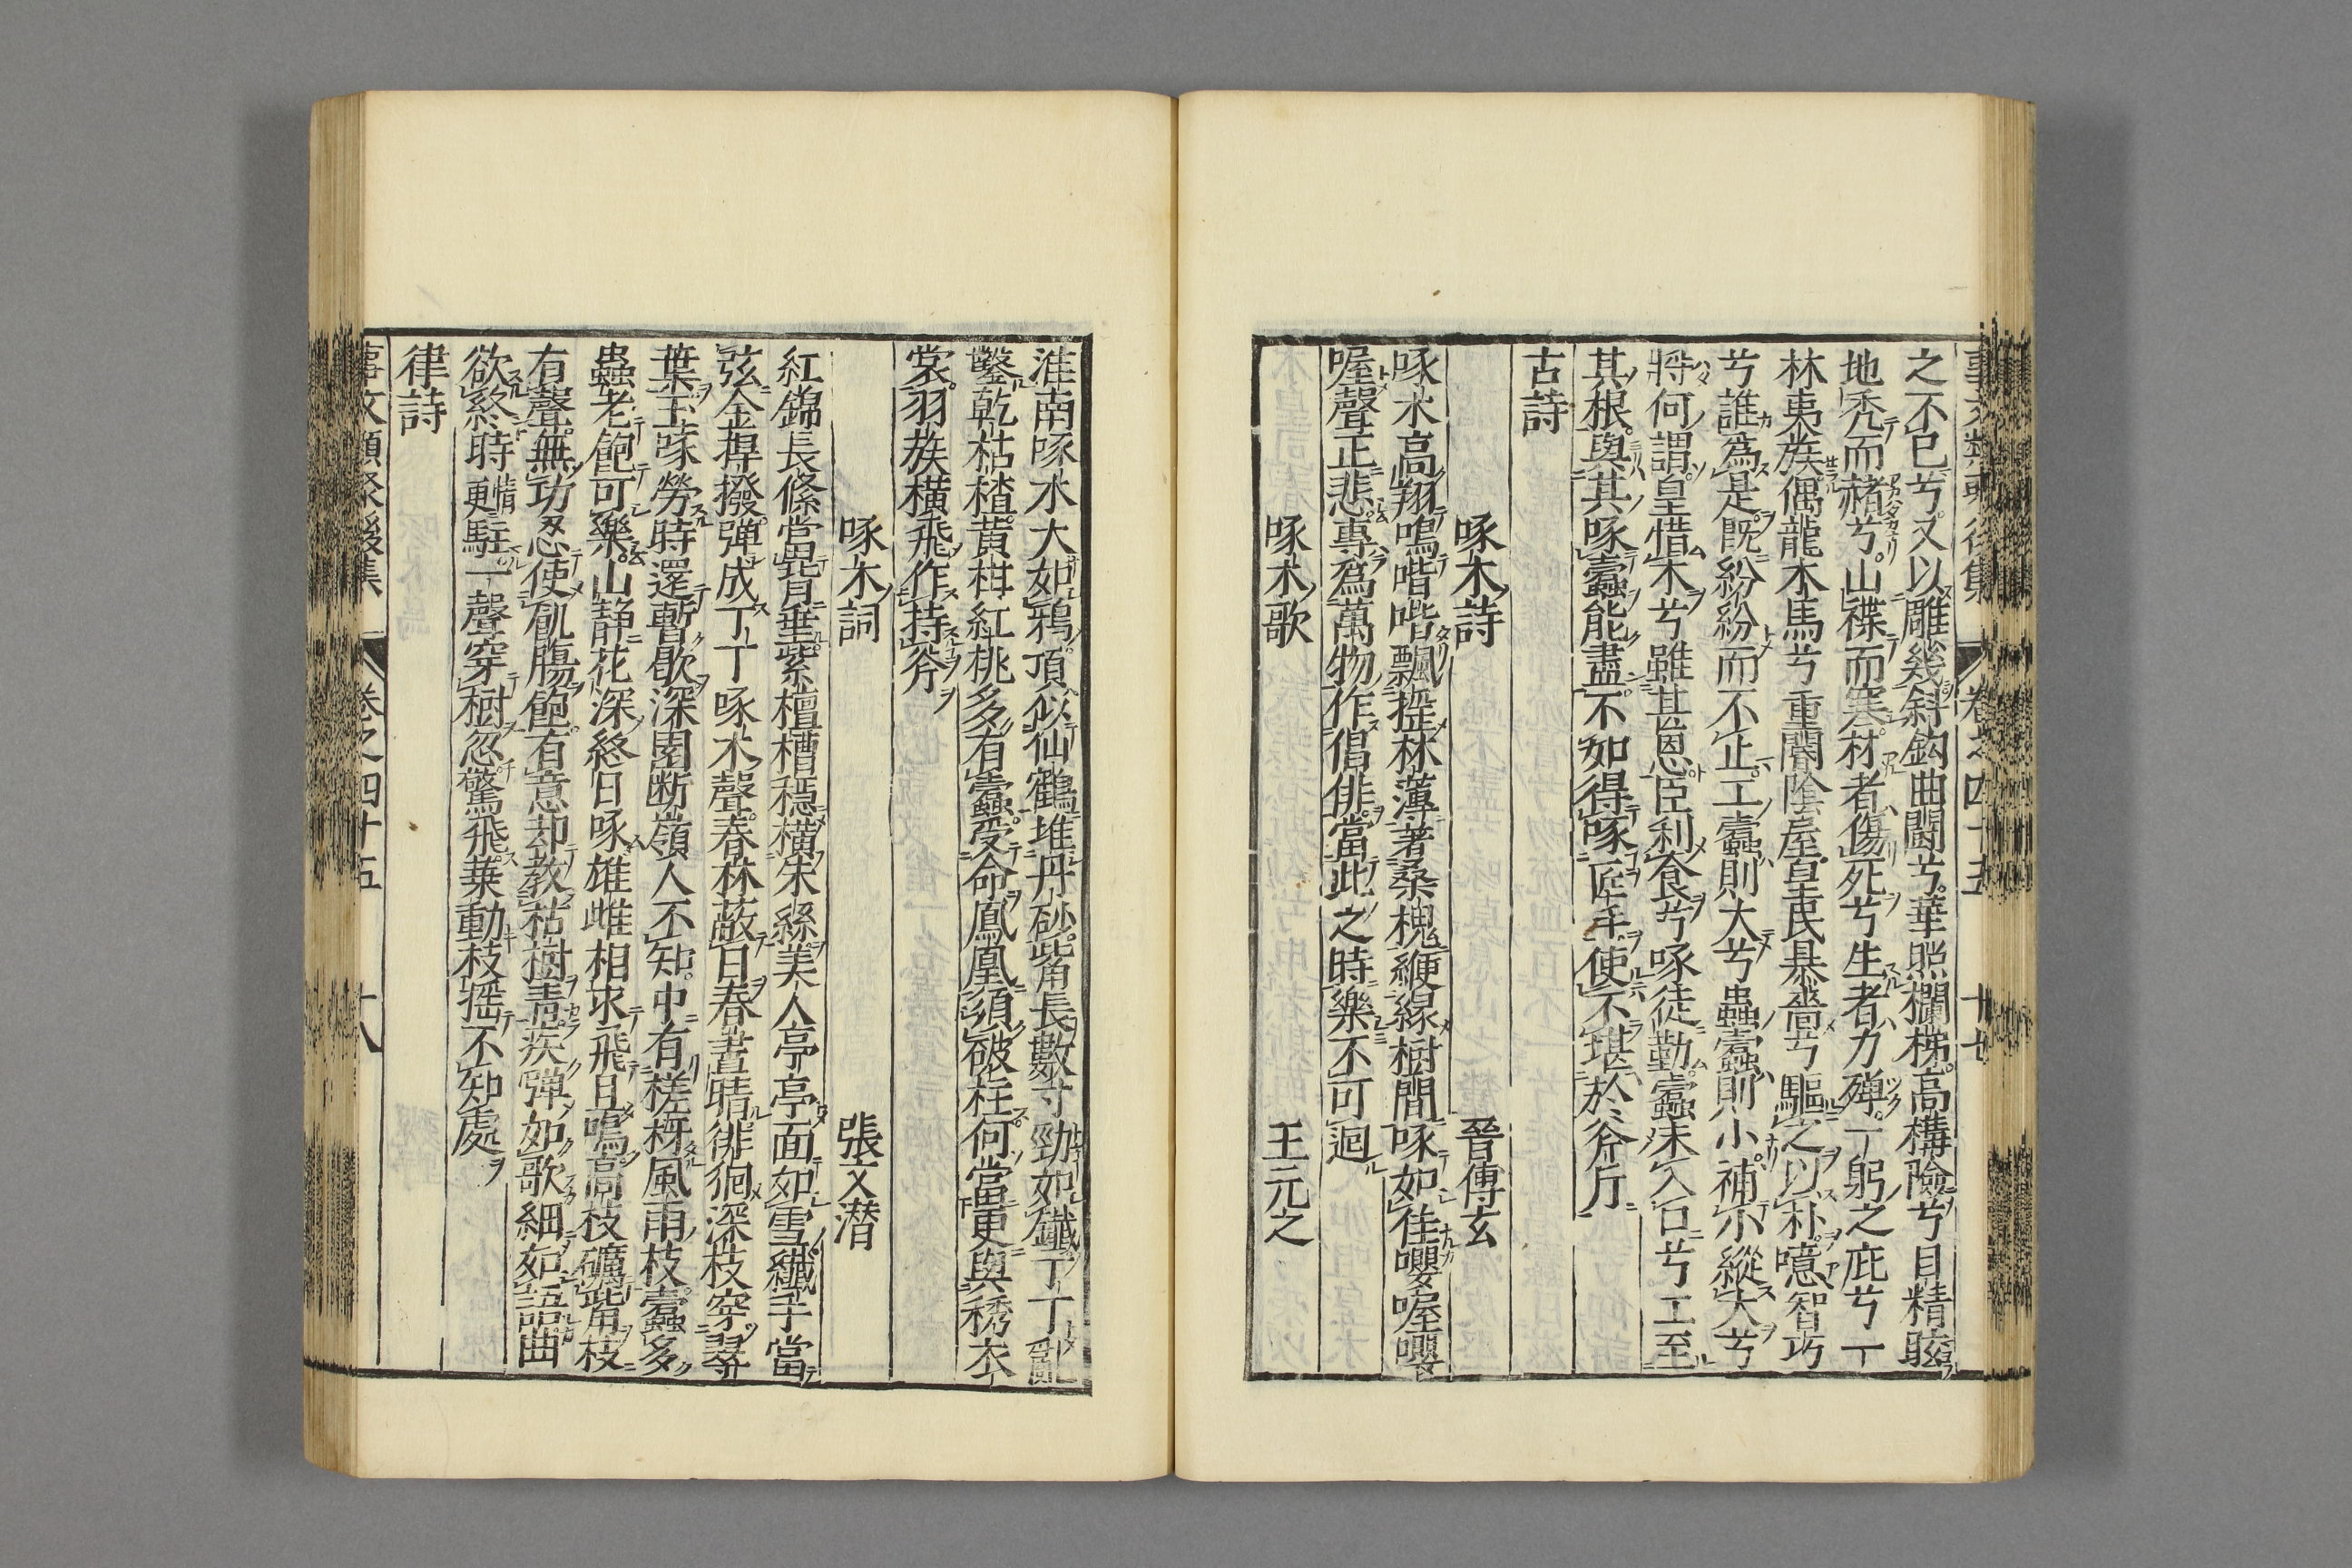 事文類聚後集 卷之四十五 廿七
之不已兮又以雕幾斜鈎曲闘兮華照欄梯高構險兮目精眩
地禿而赭兮山襍而塞材者傷死兮生者力殫一躬之庇兮一
林夷族偶龍木馬兮重闈陰屋皇民暴嗇兮驅之以朴噫智巧
兮誰為是既紛紛而不止工蠹則大兮蟲蠹則小補小縱大兮
將何謂皇惜木兮雖甚恩臣利食兮啄徒勤蠹未入口兮工至
其根與其啄蠹能盡不如得啄匠手使不堪於斧斤
古詩
啄木詩 晉傅玄
啄木高翔鳴喈喈飄揺林薄著桑槐緶緣樹間啄如徍嚶喔嚶
喔聲正悲專為萬物作倡俳當此之時樂不可迴
啄木歌 王元之
淮南啄木大如鵶頂似仙鶴堆丹砂觜長數寸勁如鐵丁丁亂
鑿乾枯楂黄柑紅桃多有蠹受命鳳凰須破柱何當更與綉衣
裳羽族橫飛作持斧
啄木詞 張文潛
紅錦長絛當畏肯垂紫檀槽穩橫朱絲美人亭亭面如雪纖手當
弦金捍撥彈成丁丁啄木聲春林蔽日春晝晴徘徊深枝穿翠
葉玉啄勞時還暫歇深園断嶺人不知中有槎枒風雨枝蠹多
蟲老飽可樂山静花深終日啄雄雌相求飛且鳴高枝礪觜枝
有聲無功忍使飢腸飽有意却教枯樹青疾彈如歌細如語曲
欲終時情更駐一聲穿樹忽驚飛葉動枝揺不知處
律詩
事文類聚後集 卷之四十五 廿八